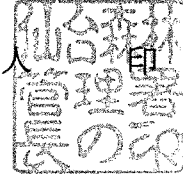 仙台森林
人 印
管理署
長の印